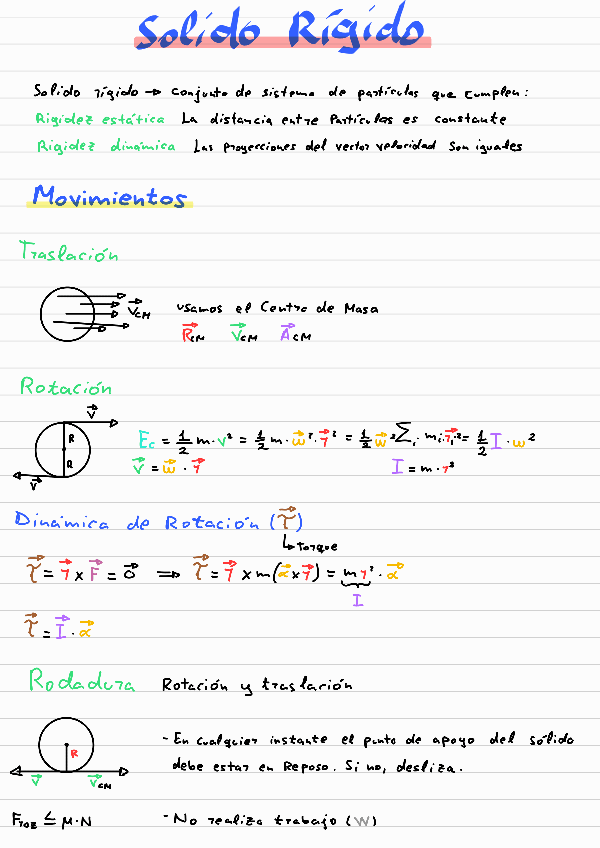 Solído Rígido
Solido rígido → Conjunto de sistema de partículas que cumplen:
Rigidez estática La distancia entre Partículas es constante
Rigidez dinámica Las proyecciones del vector velocidad son iguales
Movimientos
Traslación
V⃗CM
usamos el Centro de Masa
R⃗CM V⃗CM A⃗CM
Rotación
V⃗
R
R
V⃗
Ec = 1/2 m·v² = 1/2 m·w⃗²·r⃗² = 1/2 w⃗² Σi mi·r⃗i² = 1/2 I·w²
V⃗ = w⃗ · r⃗
I = m·r²
Dinámica de Rotación (τ⃗)
↳ Torque
τ⃗ = r⃗ x F⃗ = 0⃗ ⇒ τ⃗ = r⃗ x m(α⃗ x r⃗) = m r² · α⃗
I
τ⃗ = I⃗ · α⃗
Rodadura Rotación y traslación
R
V⃗ V⃗CM
- En cualquier instante el punto de apoyo del sólido
debe estar en Reposo. Si no, desliza.
FROZ ≤ μ·N
- No realiza trabajo (W)